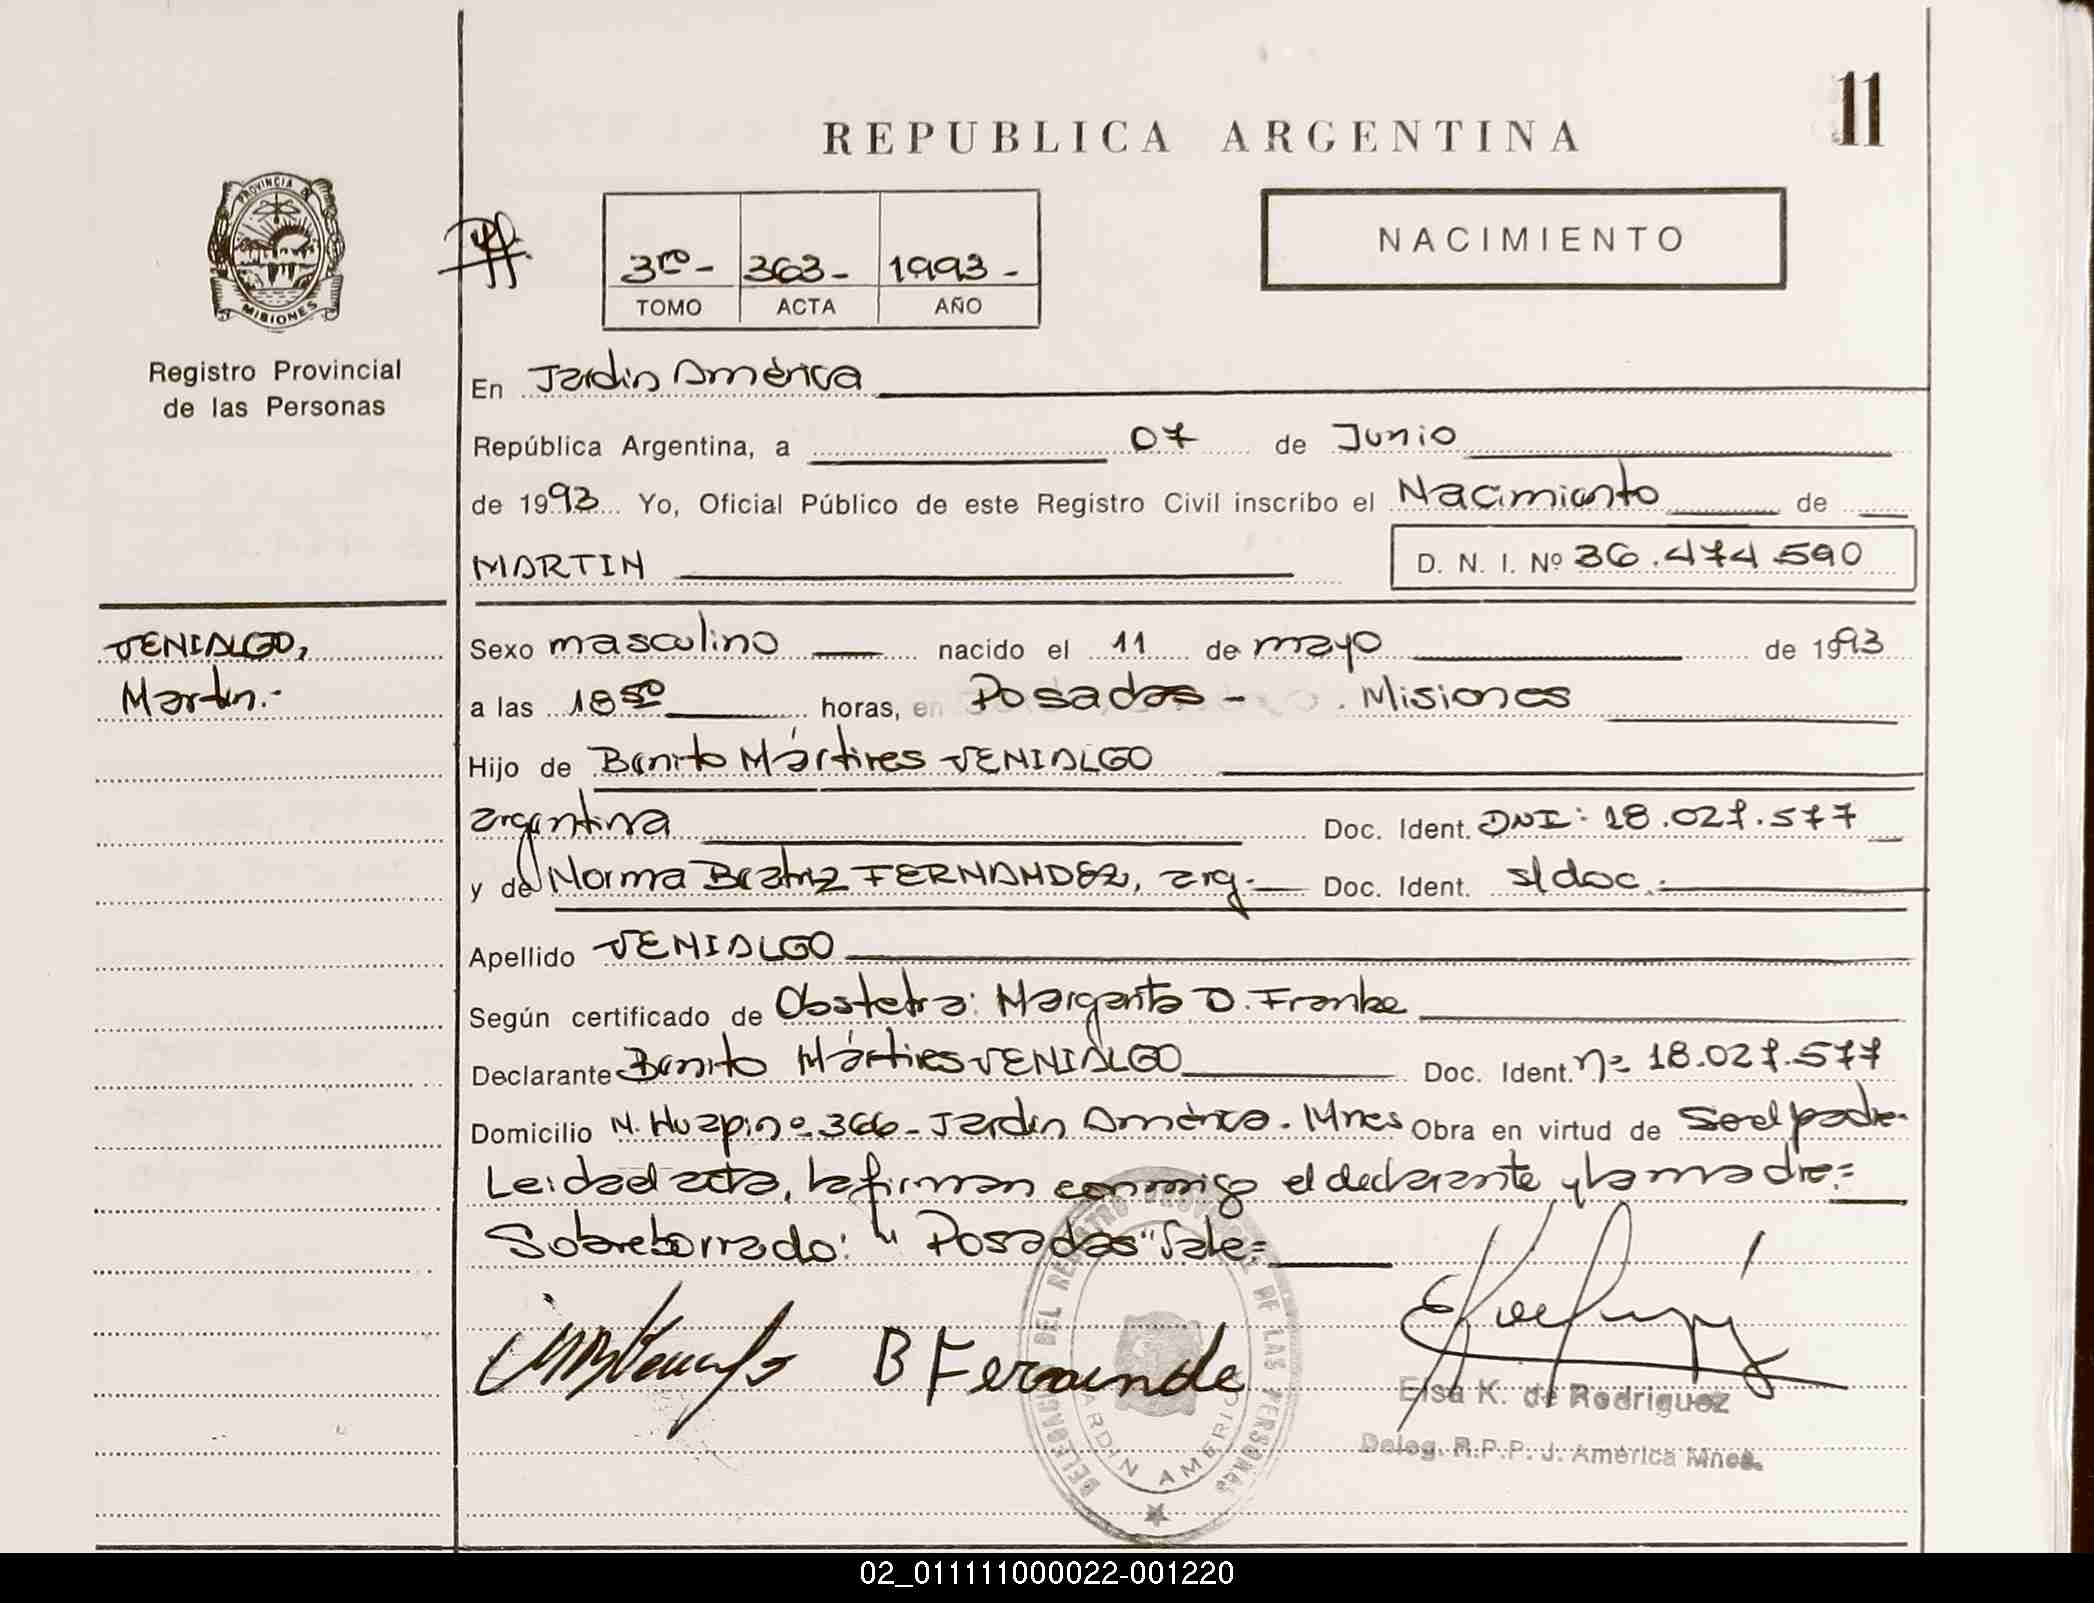 11
REPUBLICA ARGENTINA
PROVINCIA DE
MISIONES
Registro Provincial
de las Personas
3ro- 363- 1993-
TOMO ACTA AÑO
NACIMIENTO
En Jardin América
República Argentina, a 07 de Junio
de 1993 Yo, Oficial Público de este Registro Civil inscribo el Nacimiento de
MARTIN D. N. I. Nº 36.474.590
VENIALGO,
Martin.-
Sexo masculino nacido el 11 de mayo de 1993
a las 18 50 horas, en Posadas - Misiones
Hijo de Benito Mártires VENIALGO
argentina Doc. Ident. DNI: 18.027.577
y de Norma Beatriz FERNANDEZ, arg.- Doc. Ident. s/doc.-
Apellido VENIALGO
Según certificado de Obstetra: Margarita O. Franke
Declarante Benito Mártires VENIALGO Doc. Ident. nº 18.027.577
Domicilio N. Huapi nº 366- Jardin América. Mnes Obra en virtud de Ser el padre-
Leida el acta, la firman conmigo el declarante y la madre.=
Sobreborrado: "Posadas" Vale=
B Fernande
DELEGACION DEL REGISTRO PROVINCIAL DE LAS PERSONAS
JARDIN AMERICA
Elsa K. de Rodriguez
Deleg. R.P.P. J. América Mnes.
02_011111000022-001220